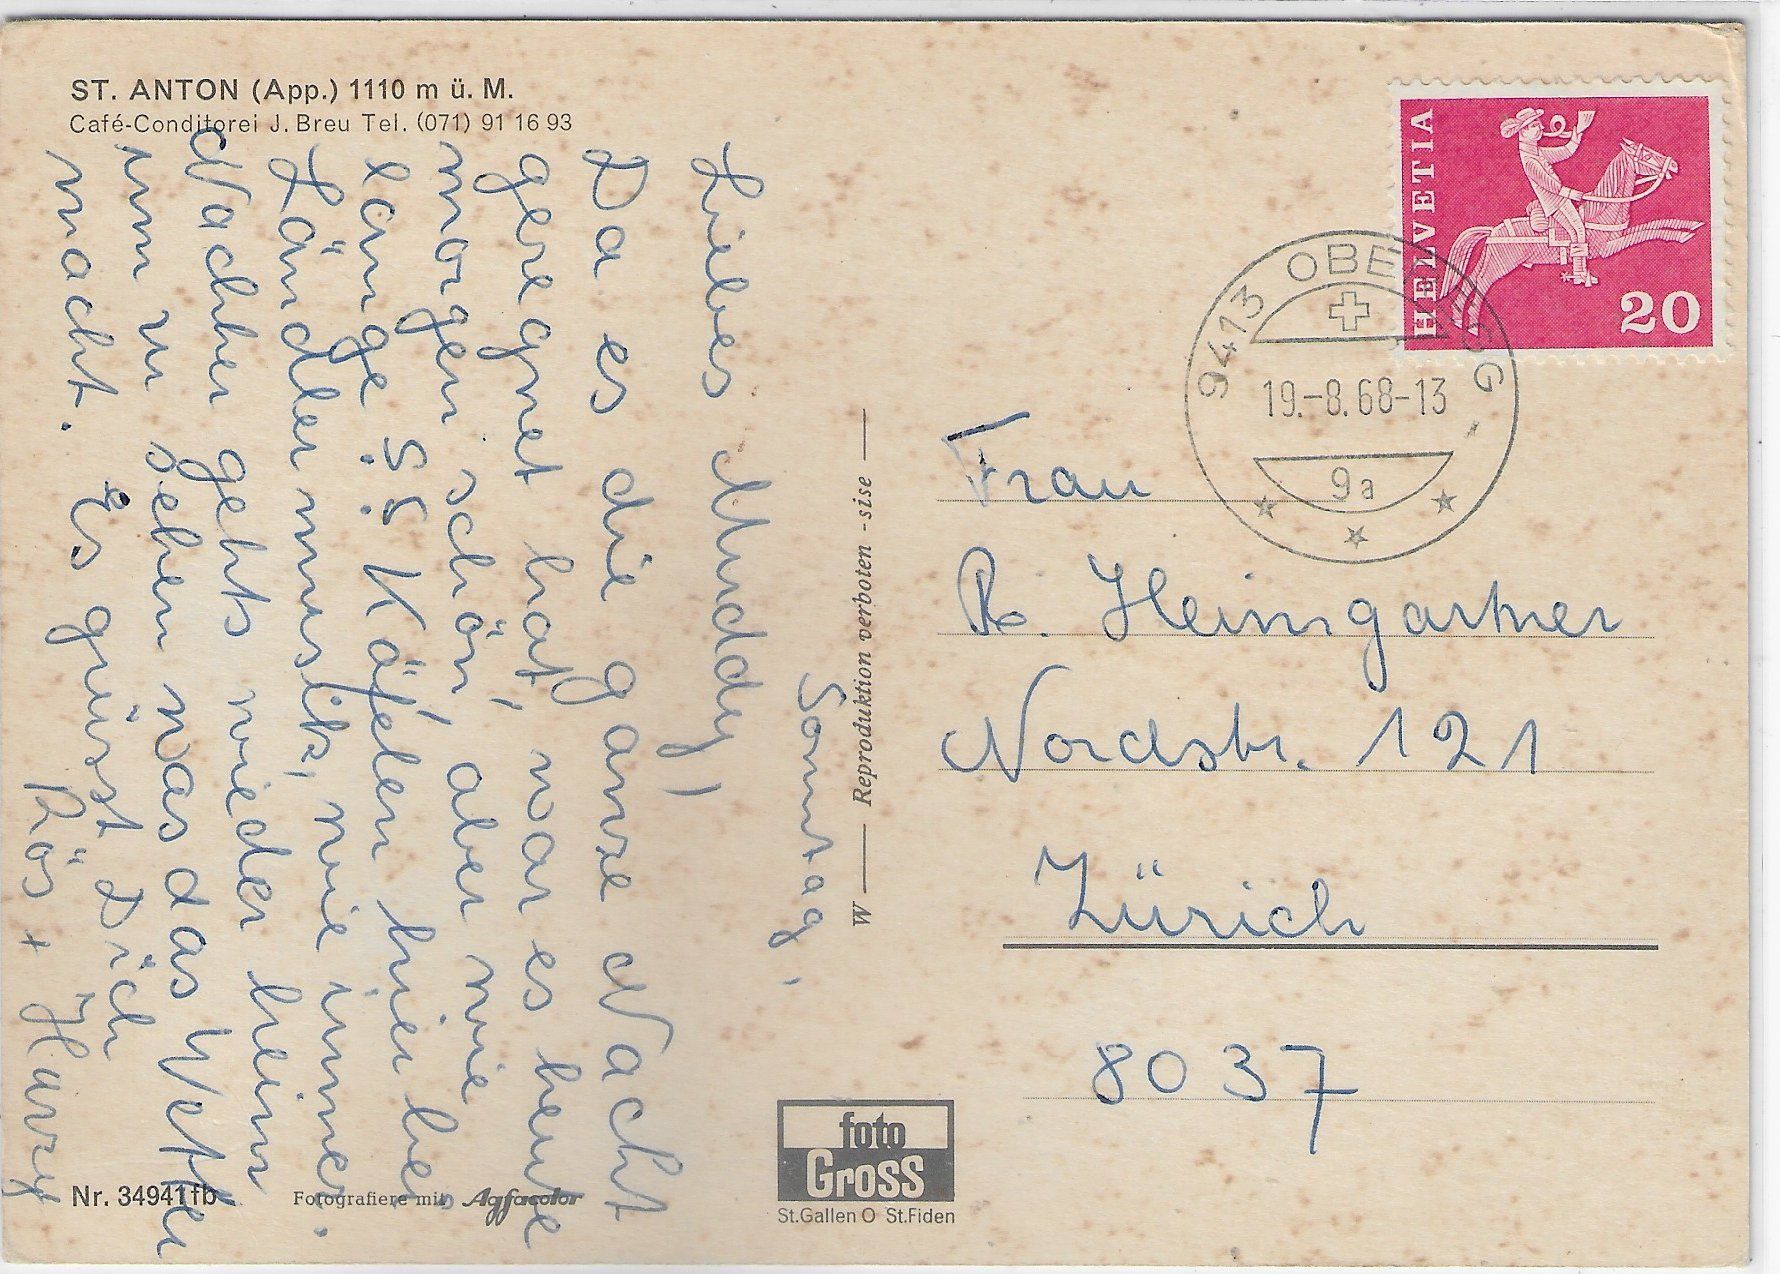 ST. ANTON (App.) 1110 m ü. M.
Café-Conditorei J. Breu Tel. (071) 91 16 93
Sonntag,
Liebes Muddy,
Da es die ganze Nacht
geregnet hat, war es heute
morgen schön, aber wie
lange ?? Käfelen hier bei
Ländlermusik, wie immer.
Nachher gehts wieder heim
um zu sehen was das Wetter
macht. Es grüsst Dich
Rös + Harry
W — Reproduktion verboten - sise —
HELVETIA
20
9413 OBEREGG
19.-8.68-13
9a
Frau
R. Heimgartner
Nordstr. 121
Zürich
8037
Nr. 34941 fb
Fotografiere mit Agfacolor
foto
Gross
St.Gallen O St.Fiden